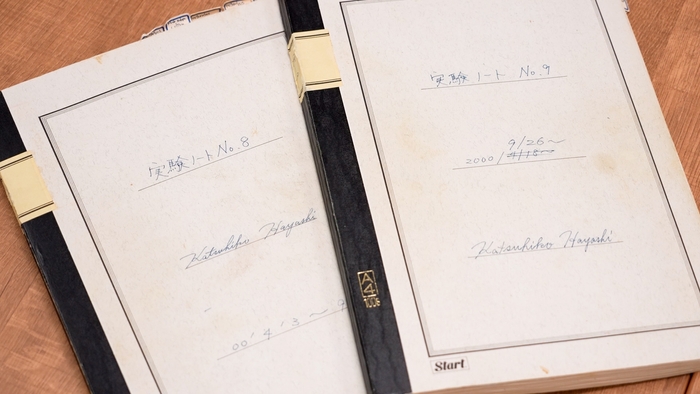 実験ノート No.8
Katsuhiko Hayashi
00' 4' 3 ~ 9
実験ノート No.9
9/26~
2000/
Katsuhiko Hayashi
A4
100S
Start